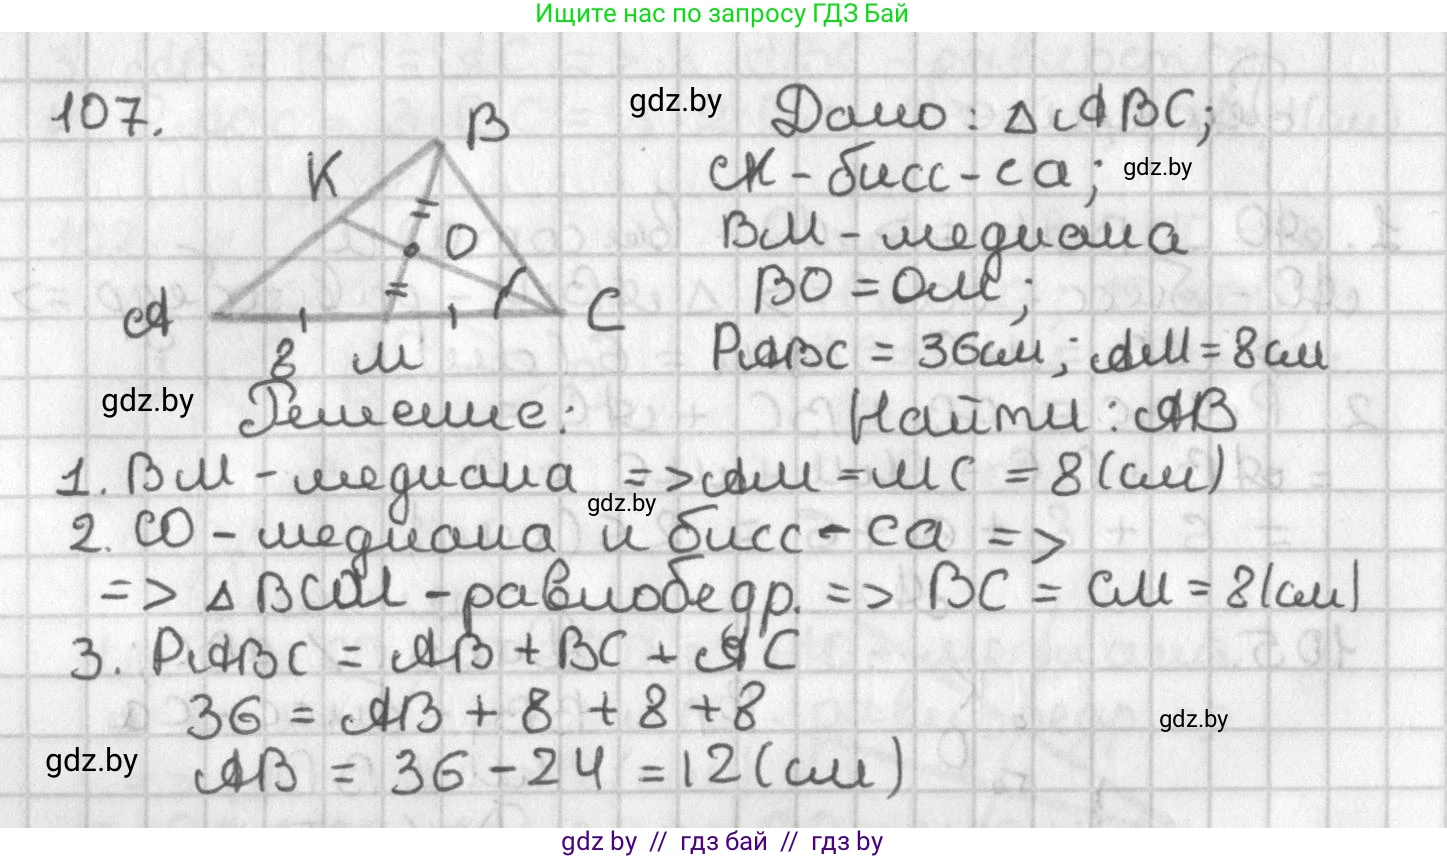 Ищите нас по запросу ГДЗ Бай
107.
gdz.by
Дано: △ABC;
B
K
CK-бисс-са;
gdz.by
O
BM-медиана
BO=OM;
A
C
8 M
PABC = 36см; AM=8см
gdz.by
Решение:
Найти: AB
1. BM-медиана => AM=MC=8(см)
gdz.by
2. CO-медиана и бисс-са =>
=> △BCM-равнобедр. => BC = CM = 8(см)
3. PABC = AB + BC + AC
36 = AB + 8 + 8 + 8
gdz.by
gdz.by
AB = 36 - 24 = 12(см)
gdz by // гдз бай // гдз by